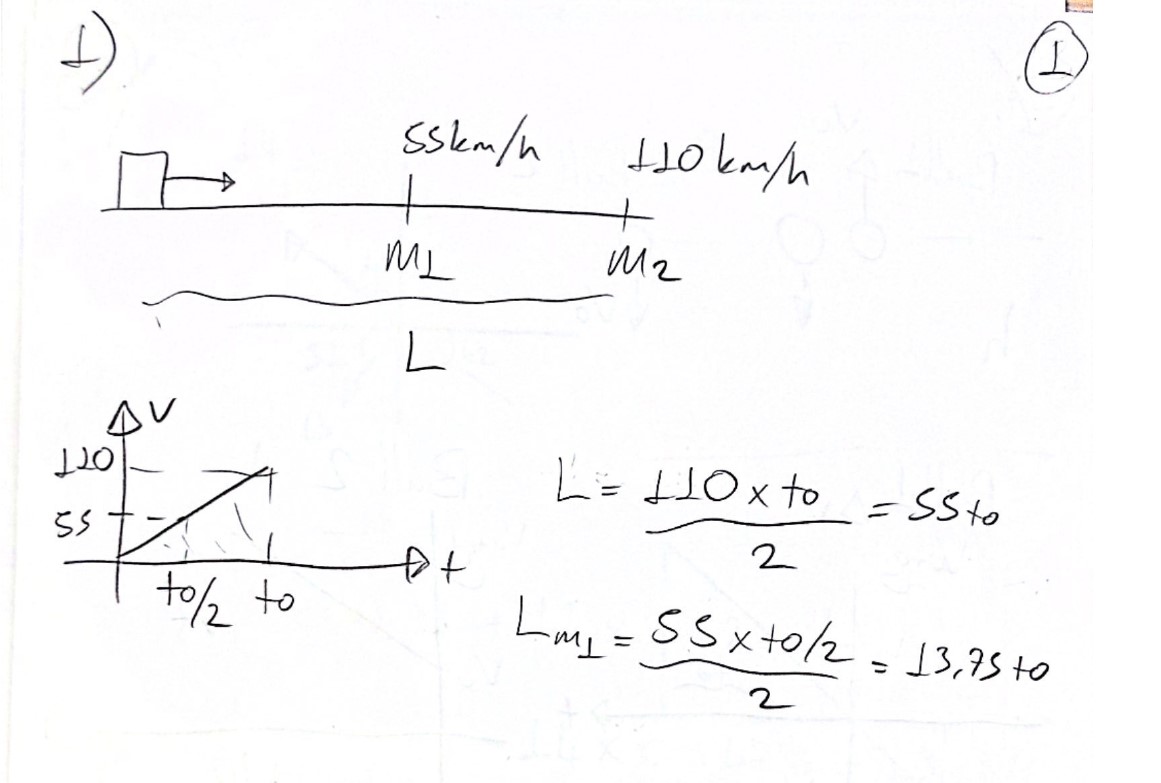 1)
1
55km/h 110km/h
M1 M2
L
V
110
55
t0/2 t0 t
L = 110 x t0 / 2 = 55t0
Lm1 = 55 x t0/2 / 2 = 13,75t0